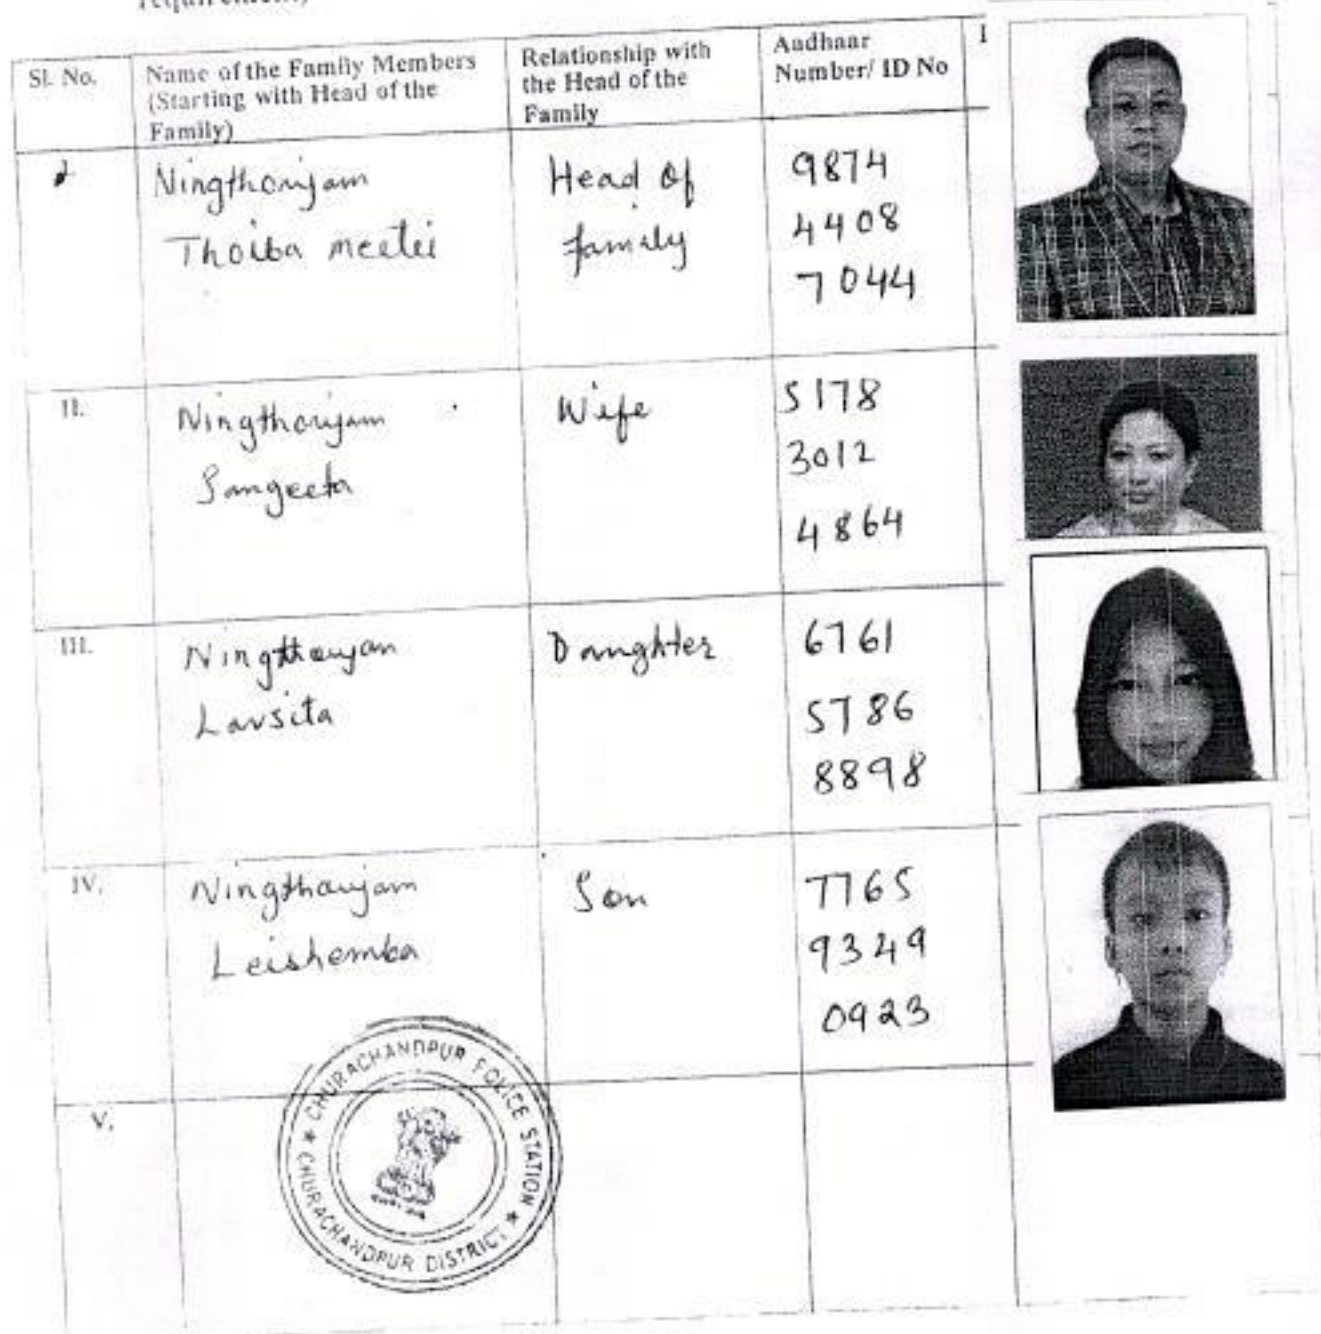 requirement)
Sl. No.
Name of the Family Members
(Starting with Head of the
Family)
Relationship with
the Head of the
Family
Aadhaar
Number/ ID No
I
Ningthoujam
Thoiba meetei
Head of
family
9874
4408
7044
II.
Ningthoujam
Sangeeta
Wife
5178
3012
4864
III.
Ningthoujam
Daughter
6761
5786
8898
IV.
Ningthoujam
Leishemba
Son
7765
9349
0923
V.
CHURACHANDPUR POLICE STATION
★ CHURACHANDPUR DISTRICT ★